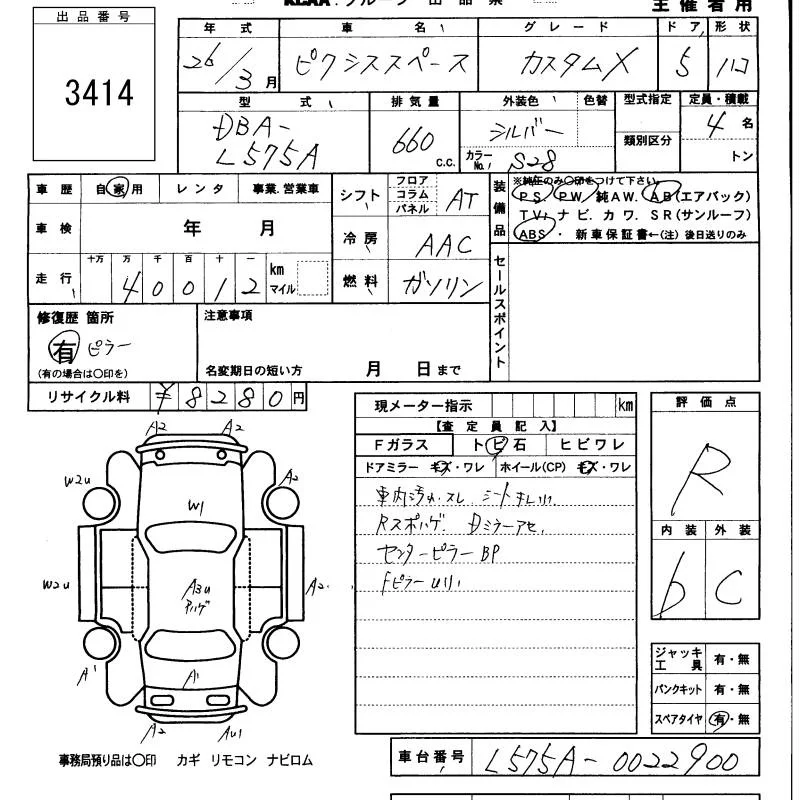 KCAA.グループ 出品票
主催者用
出品番号
3414
年式 車名 グレード ドア 形状
26/3月 ピクシススペース カスタムX 5 ハコ
型式 排気量 外装色 色替 型式指定 定員・積載
DBA-
L575A
660 c.c.
シルバー
カラーNo. S28
類別区分
4名
トン
車歴 自家用 レンタ 事業.営業車
車検 年 月
走行 十万 万 千 百 十 一
40012 km マイル
シフト フロア コラム パネル AT
冷房 AAC
燃料 ガソリン
装備品
※純正のみ〇印をつけて下さい
PS. PW. 純AW. AB(エアバック)
TV. ナビ. カワ. SR(サンルーフ)
ABS ・ 新車保証書←(注) 後日送りのみ
セールスポイント
修復歴 箇所
有 ピラー
(有の場合は〇印を)
注意事項
名変期日の短い方 月 日まで
リサイクル料 ¥8280円
現メーター指示 km
【査定員記入】
Fガラス トビ石 ヒビワレ
ドアミラー キズ・ワレ ホイール(CP) キズ・ワレ
車内汚レ.スレ シート
Rスポハゲ. Dミラーアセ.
センターピラーBP
Fピラー
評価点
R
内装 外装
b C
ジャッキ工具 有・無
パンクキット 有・無
スペアタイヤ 有・無
A2 A2
W2u A2
W1
W2u A3u A2
ハゲ
A1 A1
A2 AU1
事務局預り品は〇印 カギ リモコン ナビロム
車台番号 L575A-0022900